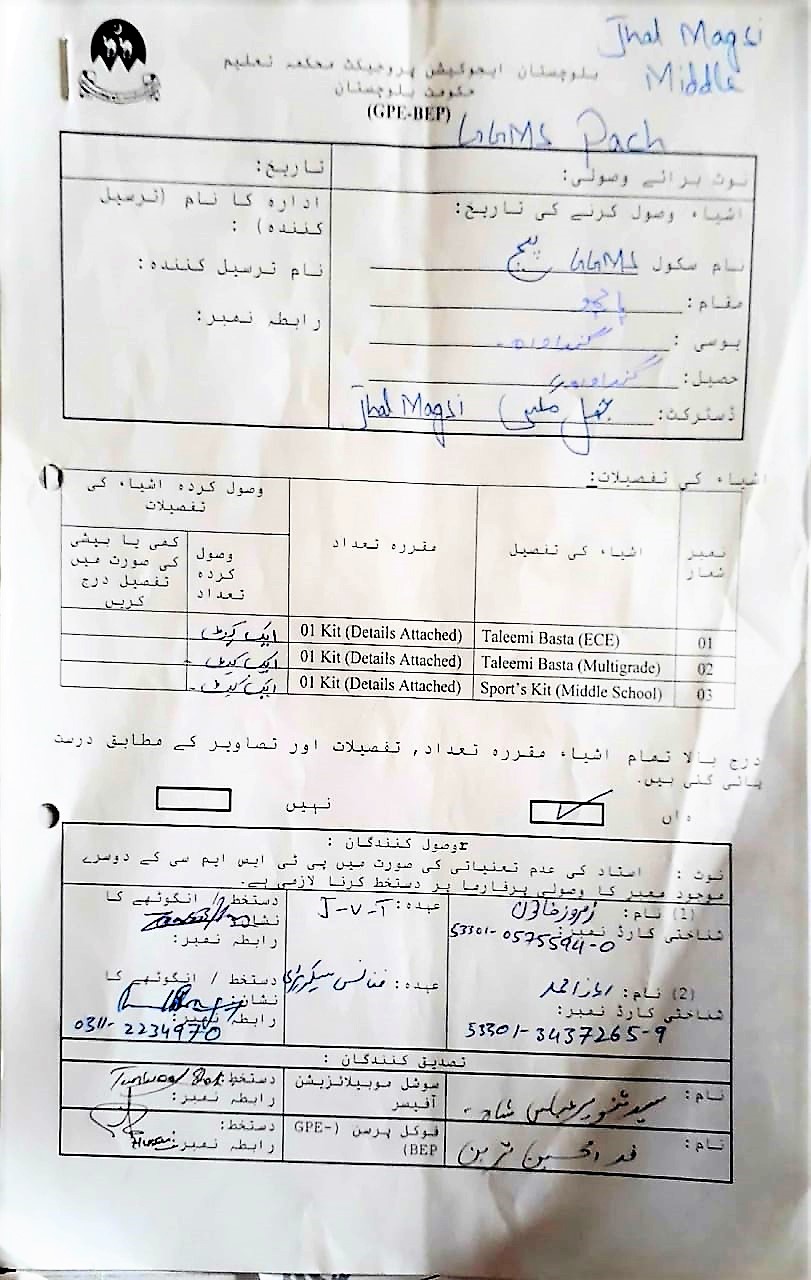 Jhal Magsi
Middle
بلوچستان ایجوکیشن پروجیکٹ محکمہ تعلیم
حکومت بلوچستان
(GPE-BEP)
GGMS Pach
نوٹ برائے وصولی:
تاریخ:
اشیاء وصول کرنے کی تاریخ:
ادارہ کا نام (ترسیل کنندہ) :
نام سکول GGMS پچ
نام ترسیل کنندہ:
مقام:
رابطہ نمبر:
یوسی : گنداواہ
حصیل: گنداواہ
ڈسٹرکٹ: جھل مگسی Jhal Magsi
اشیاء کی تفصیلات:
نمبر شمار
اشیاء کی تفصیل
مقررہ تعداد
وصول کردہ اشیاء کی تفصیلات
وصول کردہ تعداد
کمی یا بیشی کی صورت میں تفصیل درج کریں
01 Taleemi Basta (ECE) 01 Kit (Details Attached) ایک کٹ
02 Taleemi Basta (Multigrade) 01 Kit (Details Attached) ایک کٹ -
03 Sport's Kit (Middle School) 01 Kit (Details Attached) ایک کٹ -
درج بالا تمام اشیاء مقررہ تعداد, تفصیلات اور تصاویر کے مطابق درست
پائی گئی ہیں.
ہاں
نہیں
وصول کنندگان :
نوٹ : استاد کی عدم تعیناتی کی صورت میں پی ٹی ایس ایم سی کے دوسرے
موجود ممبر کا وصولی پرفارما پر دستخط کرنا لازمی ہے.
(1) نام: زمرود خاتون
شناختی کارڈ نمبر:
53301-0575594-0
عہدہ: J-V-T
دستخط / انگوٹھے کا
نشان:
رابطہ نمبر:
(2) نام: احمد
شناختی کارڈ نمبر:
53301-3437265-9
عہدہ: فنانس سیکریٹری
دستخط / انگوٹھے کا
نشان:
رابطہ نمبر:
0311-2234970
تصدیق کنندگان :
نام: سید تنویر عباس شاہ
سوشل موبیلائزیشن
آفیسر
دستخط:
رابطہ نمبر:
نام: فدا حسین ترین
فوکل پرسن (GPE-BEP)
دستخط:
رابطہ نمبر: